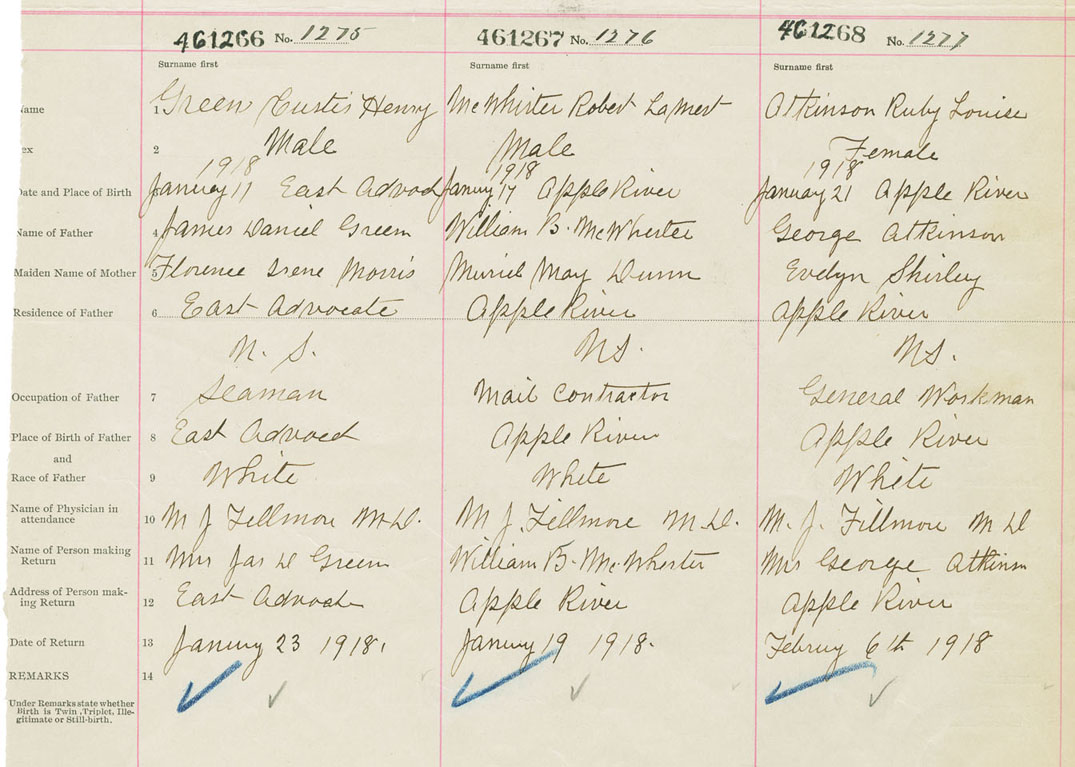 461266 No. 1275 461267 No. 1276 461268 No. 1277
Surname first Surname first Surname first
ame 1 Green Curtis Henry McWhirter Robert LaMert Atkinson Ruby Louise
ex 2 Male Male Female
1918 1918 1918
Date and Place of Birth 3 January 11 East Advoct Januy 17 Apple River January 21 Apple River
Name of Father 4 James Daniel Green William B. McWherter George Atkinson
Maiden Name of Mother 5 Florence Irene Morris Muriel May Dunn Evelyn Shirley
Residence of Father 6 East Advocate Apple River Apple River
N. S. NS. NS.
Occupation of Father 7 Seaman Mail Contractor General Workman
Place of Birth of Father 8 East Advoct Apple River Apple River
and
Race of Father 9 White White White
Name of Physician in
attendance 10 M J Fillmore M.D. M J. Fillmore M.D. M. J. Fillmore M D
Name of Person making
Return 11 Mrs Jas D Green William B. McWherter Mrs George Atkinson
Address of Person mak-
ing Return 12 East Advocate Apple River Apple River
Date of Return 13 Januy 23 1918. Januy 19 1918. Februy 6th 1918
REMARKS 14
Under Remarks state whether
Birth is Twin, Triplet, Ille-
gitimate or Still-birth.